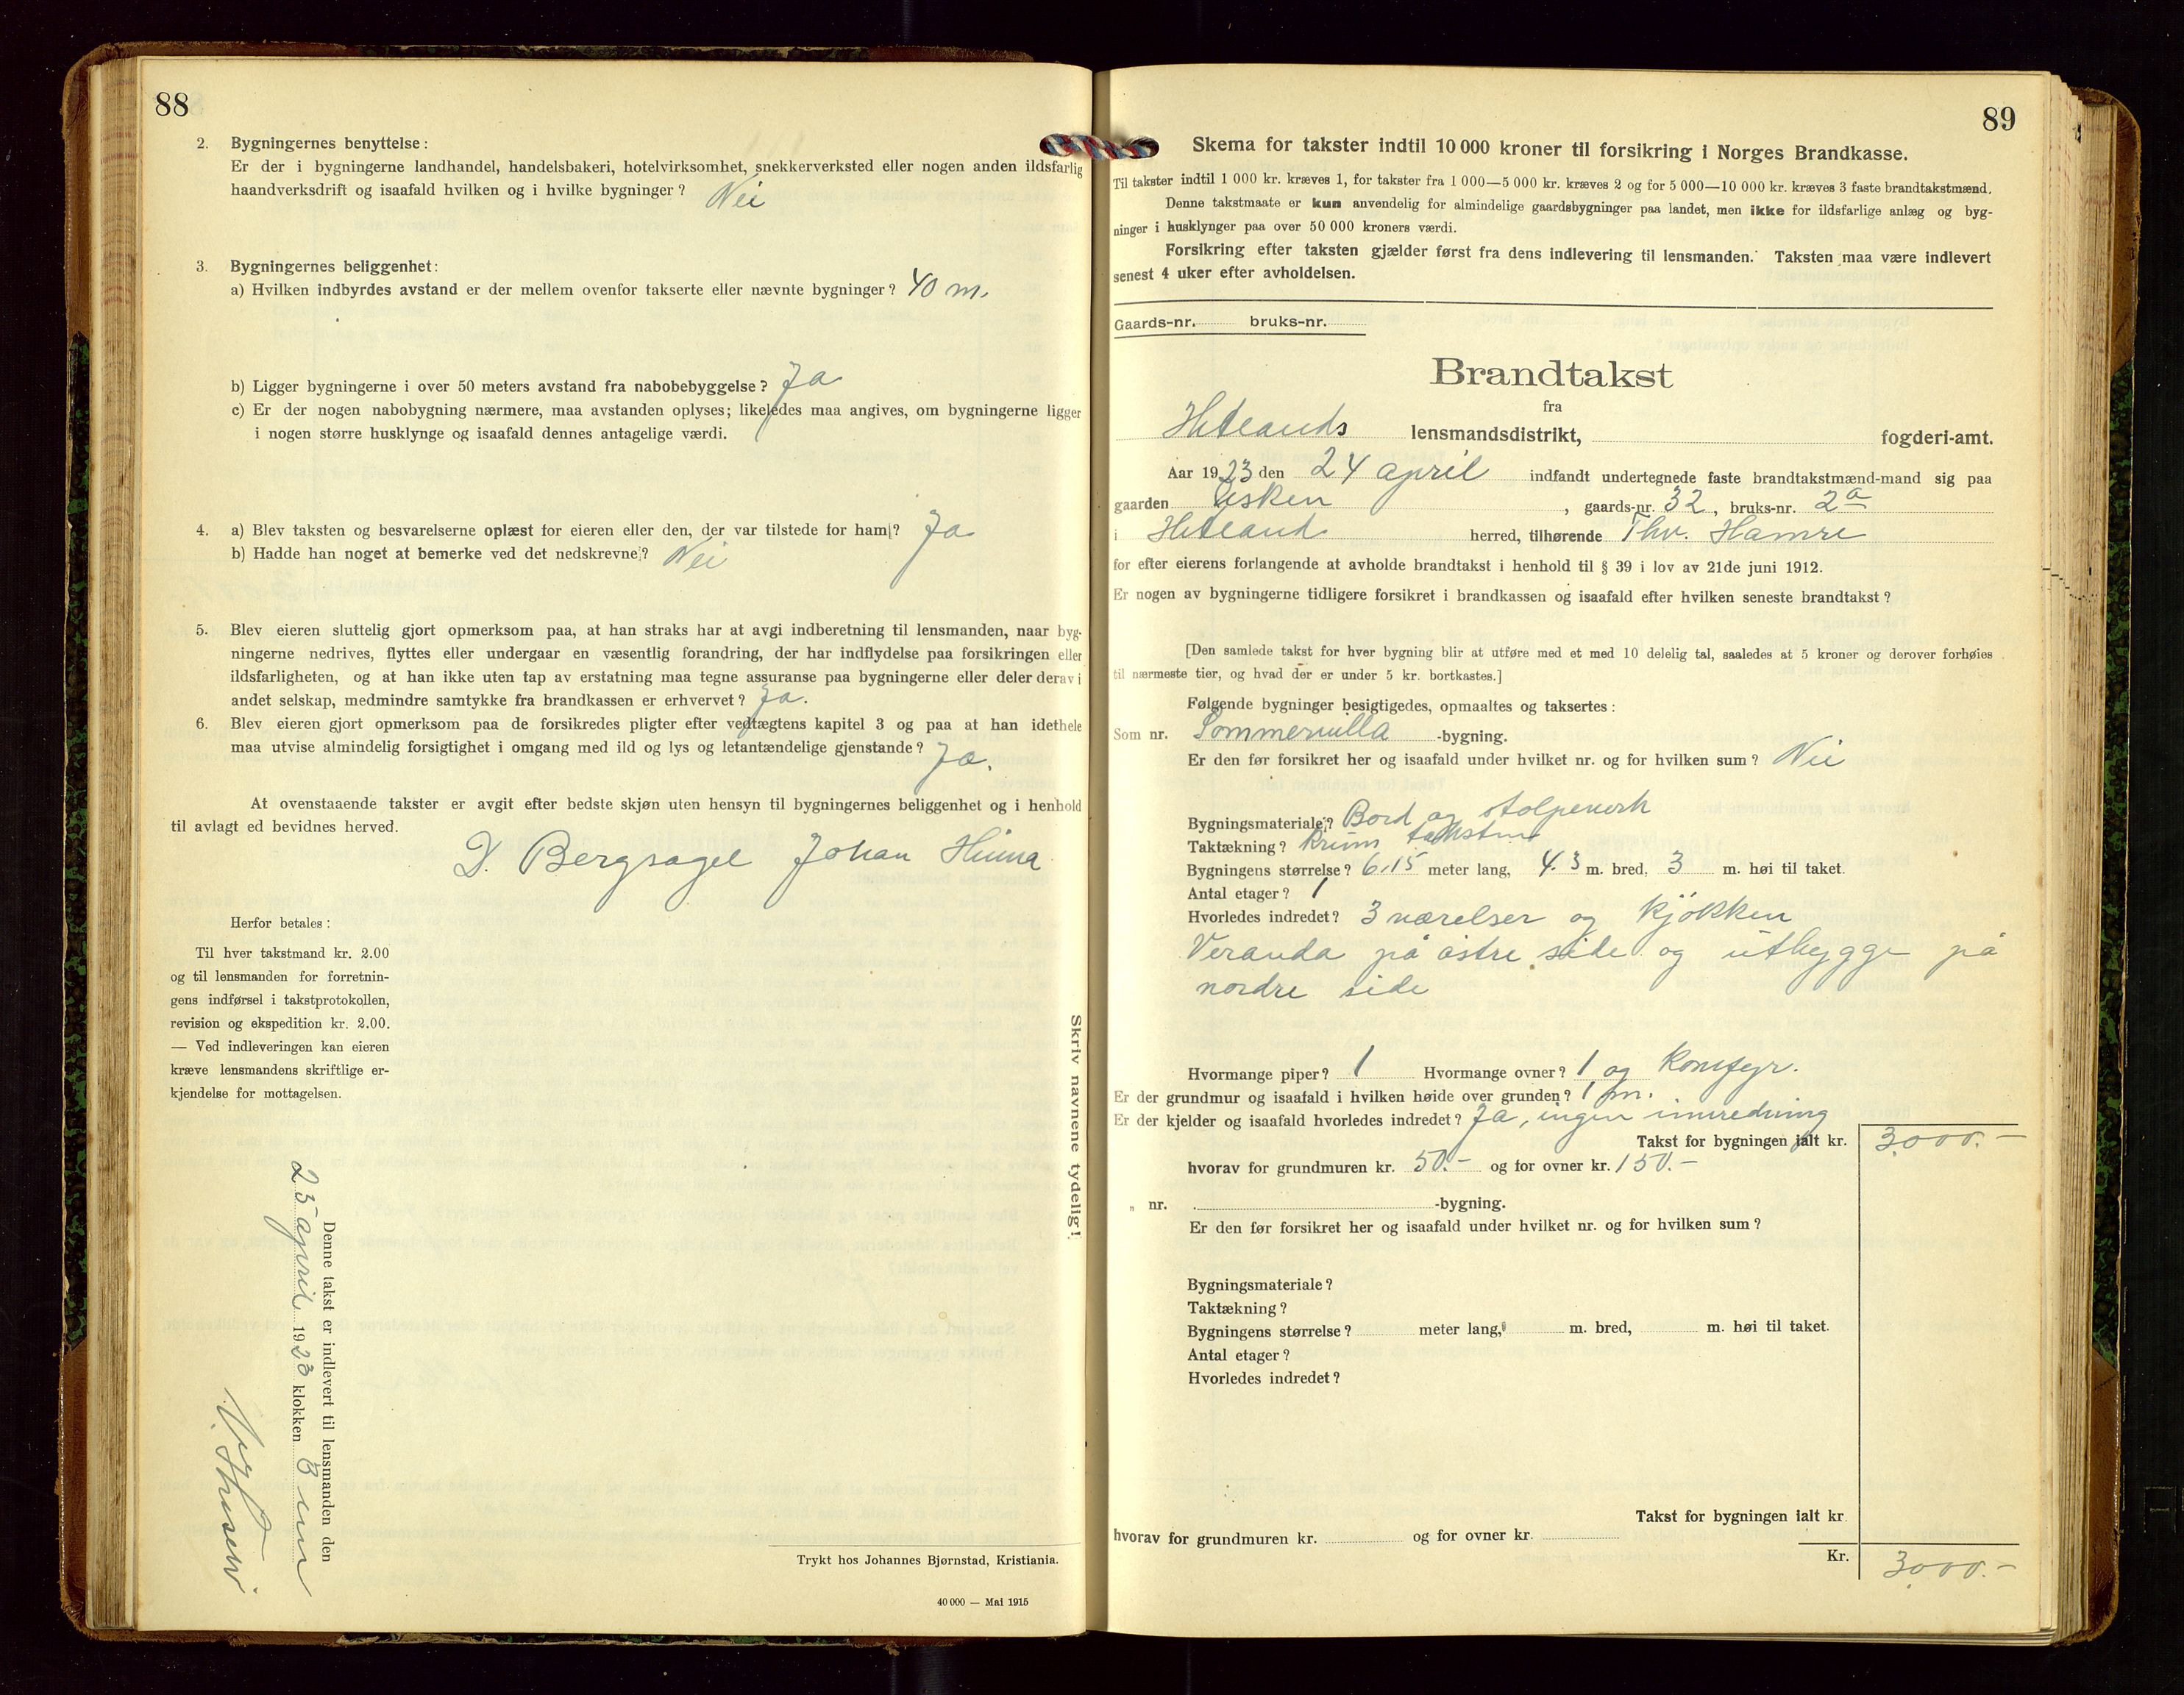 88
2. Bygningernes benyttelse:
Er der i bygningerne landhandel, handelsbakeri, hotelvirksomhet, snekkerverksted eller nogen anden ildsfarlig
haandverksdrift og isaafald hvilken og i hvilke bygninger? Nei
3. Bygningernes beliggenhet:
a) Hvilken indbyrdes avstand er der mellem ovenfor takserte eller nævnte bygninger? 40 m.
b) Ligger bygningerne i over 50 meters avstand fra nabobebyggelse? Ja
c) Er der nogen nabobygning nærmere, maa avstanden oplyses; likeledes maa angives, om bygningerne ligger
i nogen større husklynge og isaafald dennes antagelige værdi.
4. a) Blev taksten og besvarelserne oplæst for eieren eller den, der var tilstede for ham? Ja
b) Hadde han noget at bemerke ved det nedskrevne? Nei
5. Blev eieren sluttelig gjort opmerksom paa, at han straks har at avgi indberetning til lensmanden, naar byg-
ningerne nedrives, flyttes eller undergaar en væsentlig forandring, der har indflydelse paa forsikringen eller
ildsfarligheten, og at han ikke uten tap av erstatning maa tegne assuranse paa bygningerne eller deler derav i
andet selskap, medmindre samtykke fra brandkassen er erhvervet? Ja.
6. Blev eieren gjort opmerksom paa de forsikredes pligter efter vedtægtens kapitel 3 og paa at han idethele
maa utvise almindelig forsigtighet i omgang med ild og lys og letantændelige gjenstande? Ja.
At ovenstaaende takster er avgit efter bedste skjøn uten hensyn til bygningernes beliggenhet og i henhold
til avlagt ed bevidnes herved.
D. Bergsagel Johan Hinna
Herfor betales:
Til hver takstmand kr. 2.00
og til lensmanden for forretnin-
gens indførsel i takstprotokollen,
revision og ekspedition kr. 2.00.
— Ved indleveringen kan eieren
kræve lensmandens skriftlige er-
kjendelse for mottagelsen.
Denne takst er indlevert til lensmanden den
25 april 1923 klokken
Skriv navnene tydelig!
Trykt hos Johannes Bjørnstad, Kristiania.
40 000 — Mai 1915
89
Skema for takster indtil 10 000 kroner til forsikring i Norges Brandkasse.
Til takster indtil 1 000 kr. kræves 1, for takster fra 1 000—5 000 kr. kræves 2 og for 5 000—10 000 kr. kræves 3 faste brandtakstmænd.
Denne takstmaate er kun anvendelig for almindelige gaardsbygninger paa landet, men ikke for ildsfarlige anlæg og byg-
ninger i husklynger paa over 50 000 kroners værdi.
Forsikring efter taksten gjælder først fra dens indlevering til lensmanden. Taksten maa være indlevert
senest 4 uker efter avholdelsen.
Gaards-nr. bruks-nr.
Brandtakst
fra
Hetlands lensmandsdistrikt, fogderi-amt.
Aar 1923 den 24 april indfandt undertegnede faste brandtakstmænd-mand sig paa
gaarden Usken, gaards-nr. 32, bruks-nr. 2a
i Hetland herred, tilhørende Thv. Hamre
for efter eierens forlangende at avholde brandtakst i henhold til § 39 i lov av 21de juni 1912.
Er nogen av bygningerne tidligere forsikret i brandkassen og isaafald efter hvilken seneste brandtakst?
[Den samlede takst for hver bygning blir at utføre med et med 10 delelig tal, saaledes at 5 kroner og derover forhøies
til nærmeste tier, og hvad der er under 5 kr. bortkastes.]
Følgende bygninger besigtigedes, opmaaltes og taksertes:
Som nr. Sommervilla -bygning.
Er den før forsikret her og isaafald under hvilket nr. og for hvilken sum? Nei
Bygningsmateriale? Bord og stolpeverk
Taktækning? Krum taksten
Bygningens størrelse? 6.15 meter lang, 4.3 m. bred, 3 m. høi til taket.
Antal etager? 1
Hvorledes indredet? 3 værelser og kjøkken
Veranda på østre side og utbygge på
nordre side
Hvormange piper? 1 Hvormange ovner? 1 og Komfyr.
Er der grundmur og isaafald i hvilken høide over grunden? 1 m.
Er der kjelder og isaafald hvorledes indredet? Ja, ingen innredning
Takst for bygningen ialt kr. 3000.-
hvorav for grundmuren kr. 50.- og for ovner kr. 150.-
„ nr. -bygning.
Er den før forsikret her og isaafald under hvilket nr. og for hvilken sum?
Bygningsmateriale?
Taktækning?
Bygningens størrelse? meter lang, m. bred, m. høi til taket.
Antal etager?
Hvorledes indredet?
Takst for bygningen ialt kr.
hvorav for grundmuren kr. og for ovner kr.
Kr. 3000.-